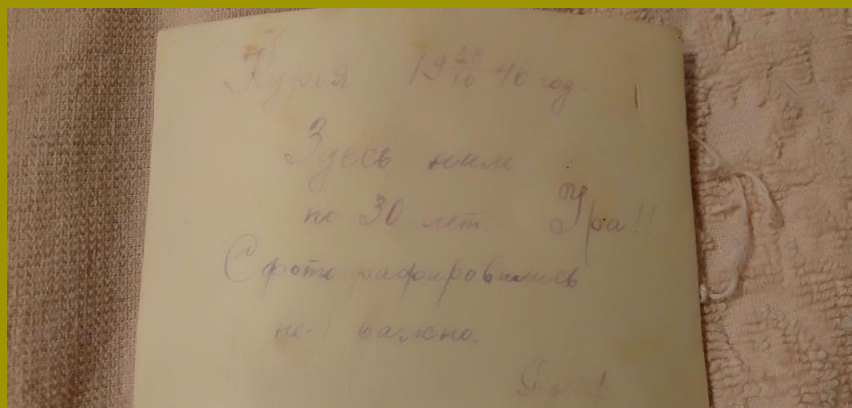 19 28/10 40 год.
Здесь нам
по 30 лет. Ура!!
Сфотографировались
не важно.